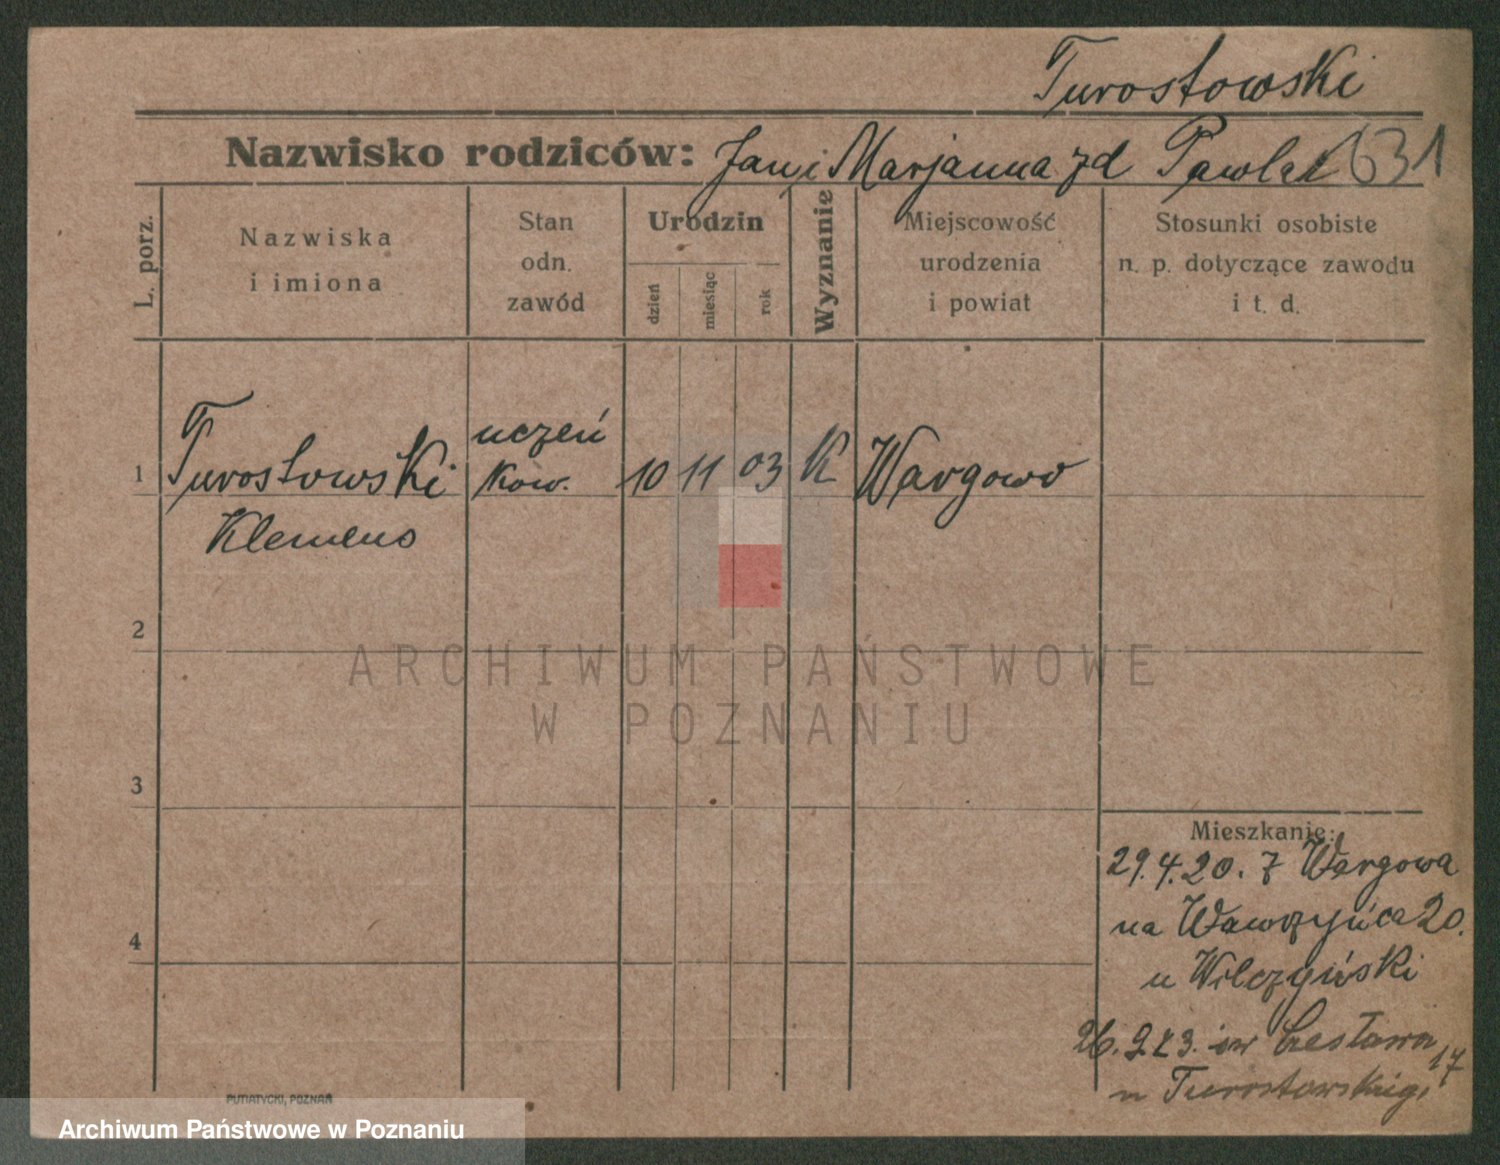 Turostowski
Nazwisko rodziców: Jan i Marjanna zd Pawlak 631
L. porz.
Nazwiska
i imiona
Stan
odn.
zawód
Urodzin
dzień
miesiąc
rok
Wyznanie
Miejscowość
urodzenia
i powiat
Stosunki osobiste
n. p. dotyczące zawodu
i t. d.
1 Turostowski uczeń kow. 10 11 03 K Wargowo
Klemens
2
3
4
ARCHIWUM PAŃSTWOWE
W POZNANIU
Mieszkanie:
29.4.20. z Wargowa
na Wawrzyńca 20.
u Wilczyński
26.9.23. Czesława 17
u Turostowskiego
PUTIATYCKI, POZNAŃ
Archiwum Państwowe w Poznaniu